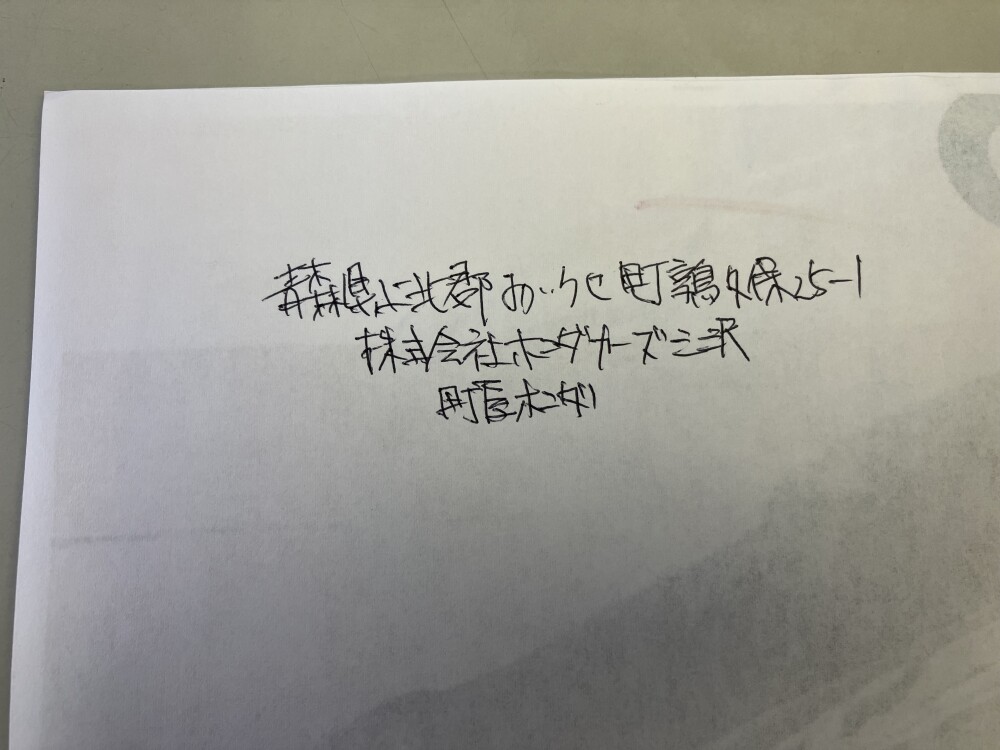 青森県上北郡おいらせ町鶉久保25-1
株式会社ホンダカーズ三沢
町屋ホンダ